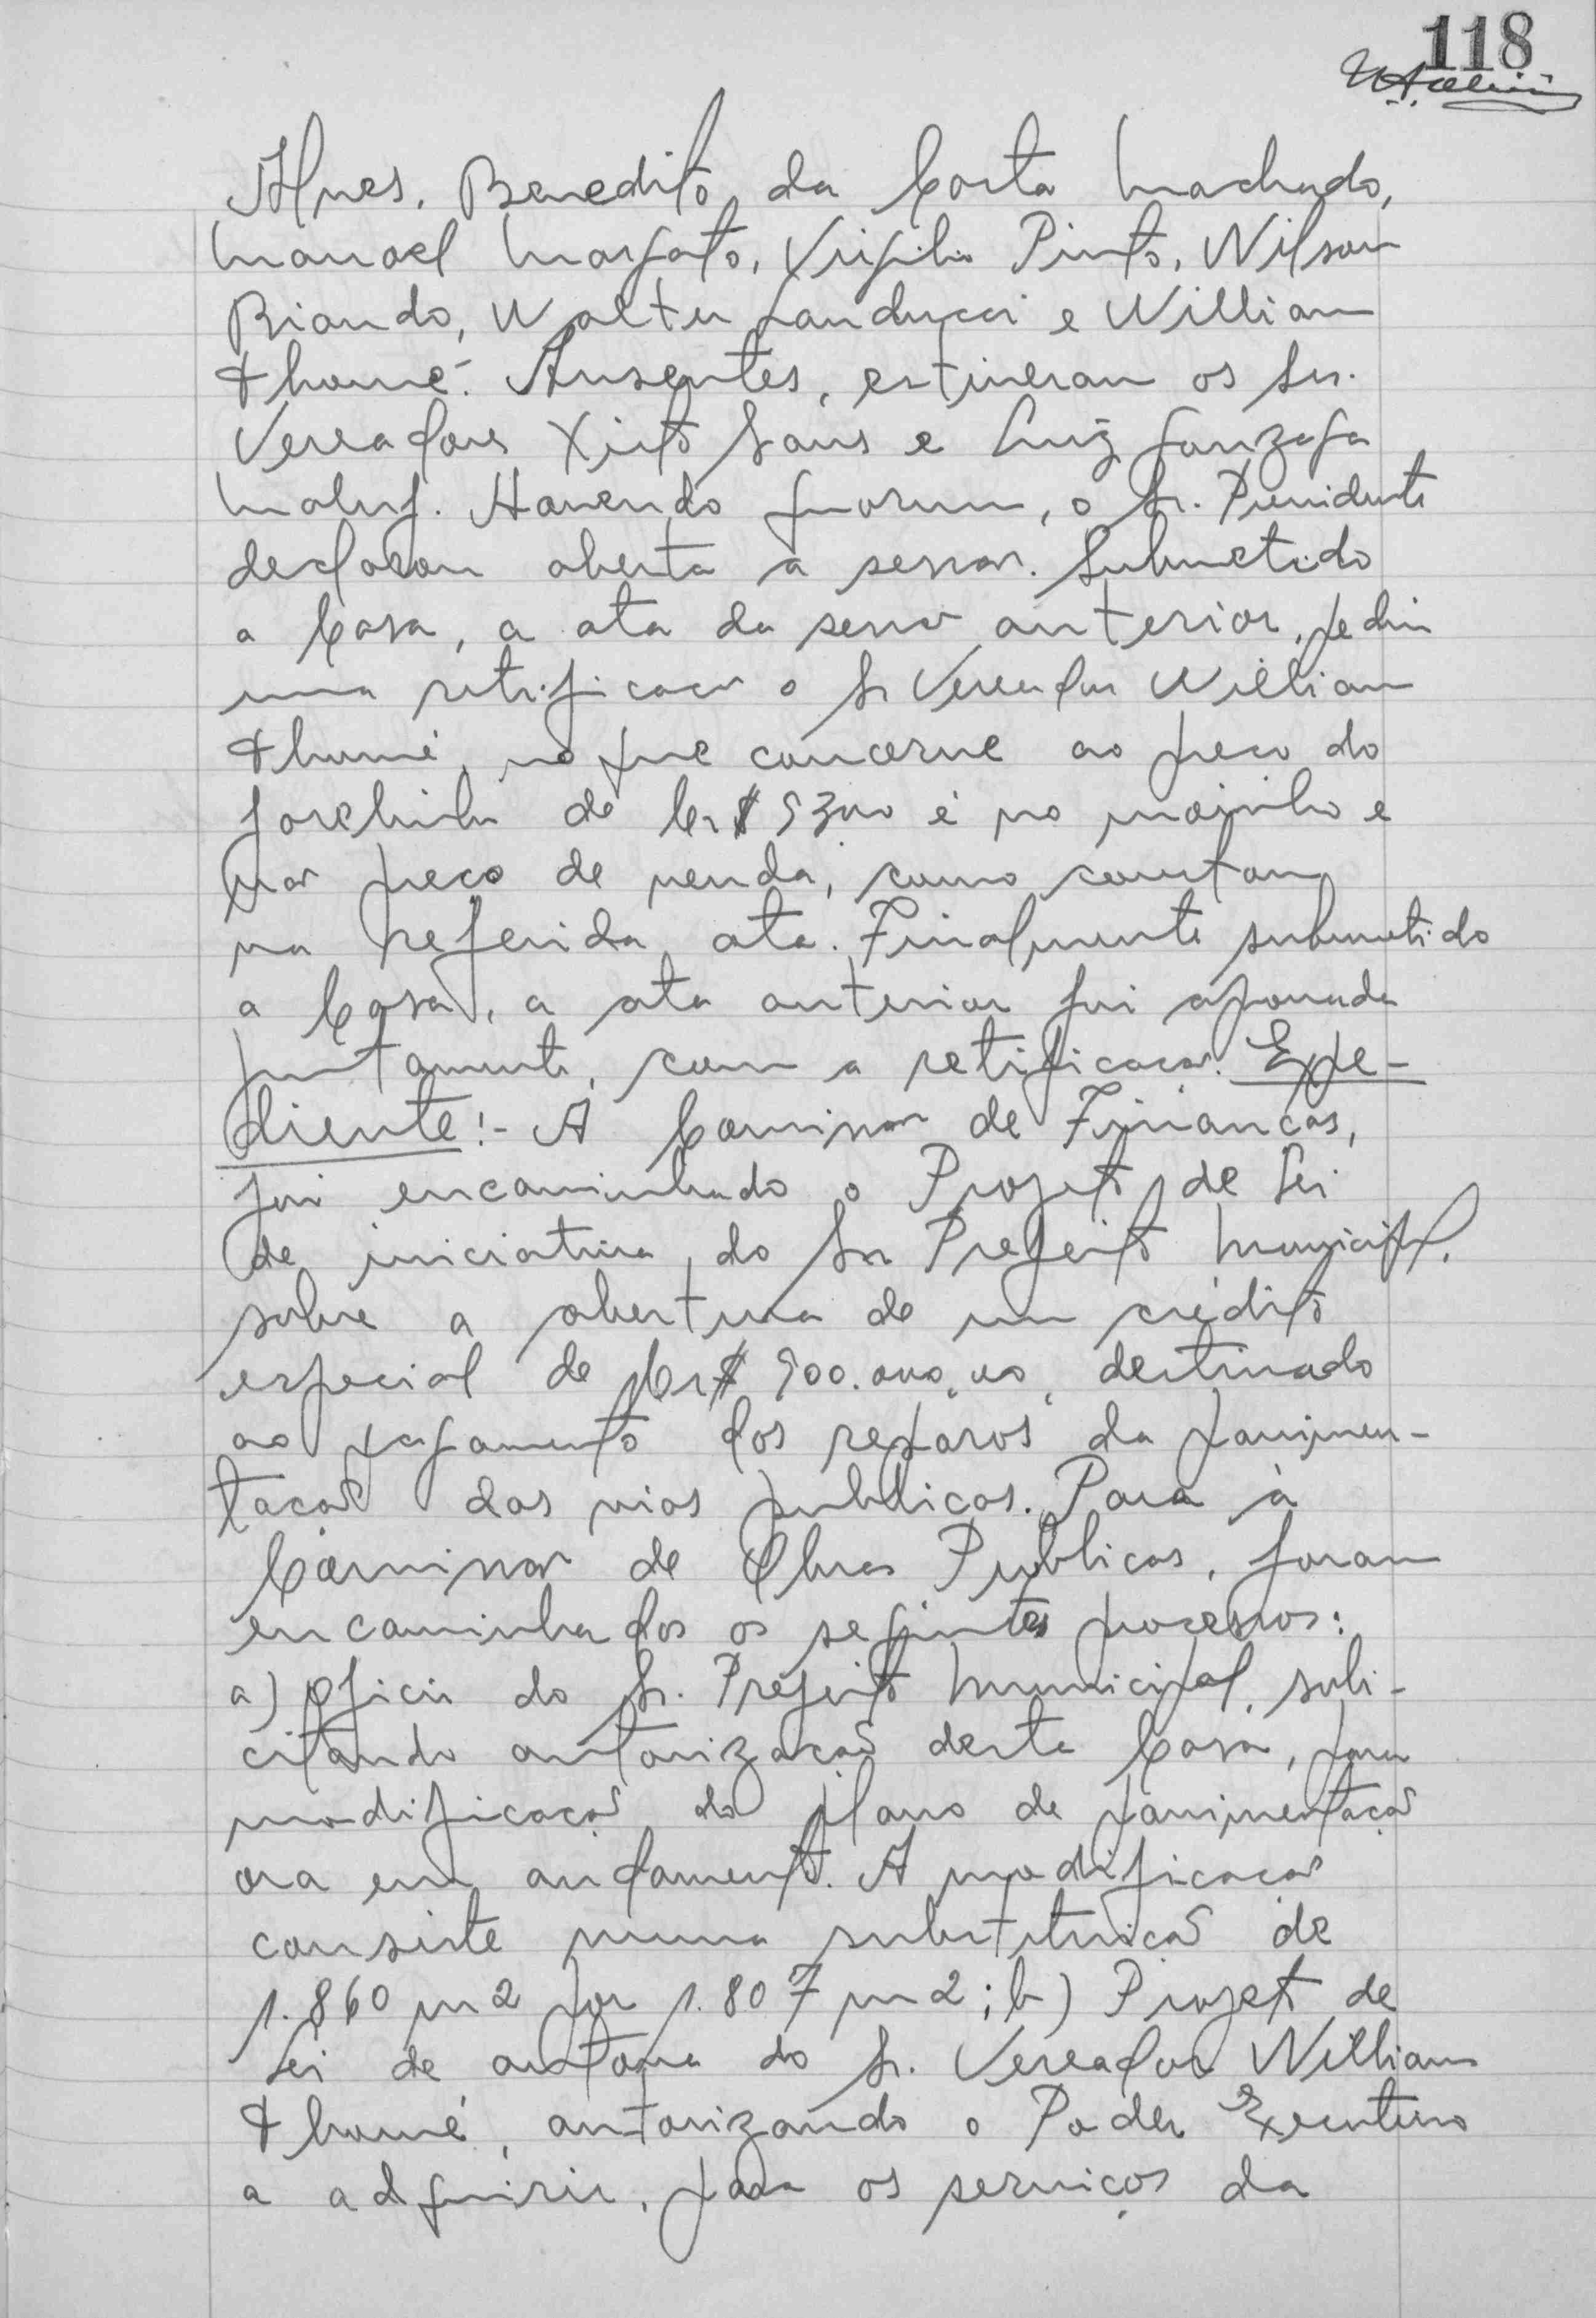 118
Alves, Benedito da Costa Machado,
Manoel Morgato, Virgilio Pinto, Wilson
Biondo, Walter Landucci e William
Thomé. Ausentes, estiveram os Srs.
Vereadores Xisto Sans e Luiz Gonzaga
Maluf. Havendo quorum, o Sr. Presidente
declarou aberta a sessão. Submetido
a Casa, a ata da sessão anterior, pediu
uma retificacão o Sr Vereador William
Thomé, no que concerne ao preco do
farelinho de Cr$ é no moinho e
não preco de venda, como constam
na referida ata. Finalmente submetido
a Casa, a ata anterior foi aprovada
juntamente, com a retificacão. Expe-
diente:- A Comissão de Financas,
foi encaminhado o Projeto de Lei
de iniciativa do Sr Prefeito Municipal.
sobre a abertura de um crédito
especial de Cr$ 500.000,00, destinado
ao pagamento dos reparos da pavimen-
tacão das vias publicas. Para à
Comissão de Obras Publicas, foram
encaminhados os seguintes processos:
a) Oficio do Sr. Prefeito Municipal, soli-
citando autorizacão desta Casa, para
modificação do plano de pavimentação
ora em andamento. A modificacão
consiste numa substituicão de
1.860 m2 por 1.807 m2; b) Projeto de
Lei de autoria do Sr. Vereador William
Thomé, autorizando o Poder Executivo
a adquirir, para os serviços da